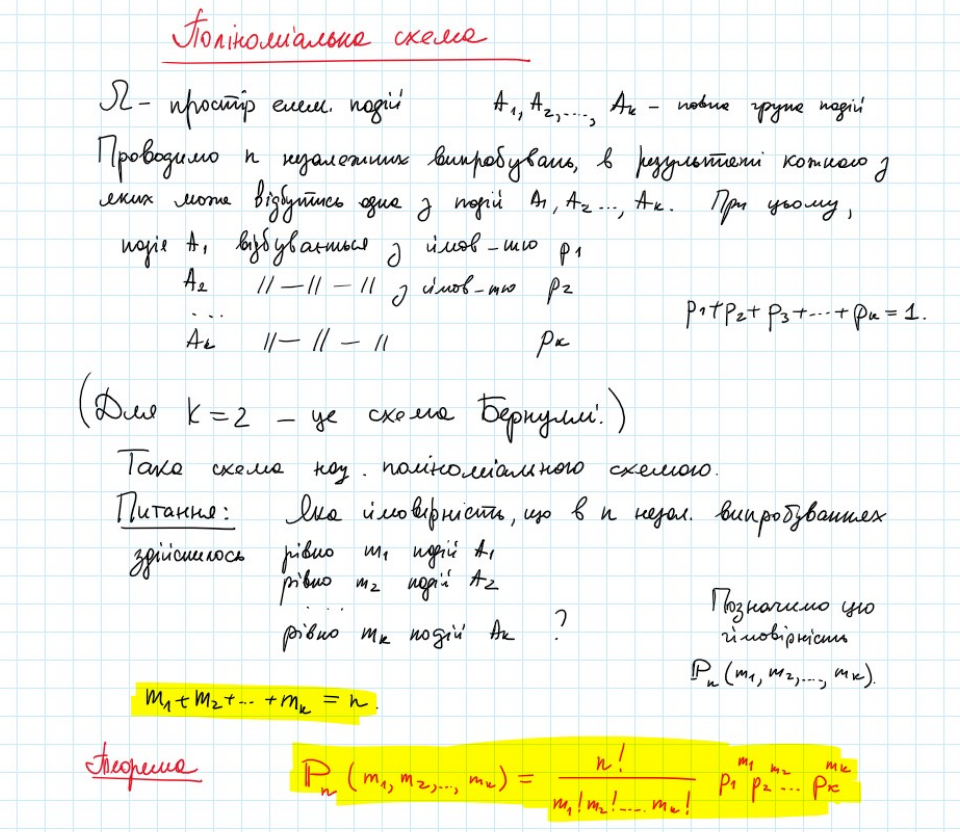 Поліноміальна схема
Ω – простір елем. подій A₁, A₂, ..., Aₖ – повна група подій
Проводимо n незалежних випробувань, в результаті кожного з
яких може відбутись одна з подій A₁, A₂ ..., Aₖ. При цьому,
подія A₁ відбувається з ймов–тю p₁
A₂ //—//—// з ймов–тю p₂
...
p₁+p₂+p₃+...+pₖ=1.
Aₖ //—//—// pₖ
(Для k=2 – це схема Бернуллі.)
Така схема наз. поліноміального схемою.
Питання: Яка ймовірність, що в n незал. випробуваннях
здійснилось рівно m₁ подій A₁
рівно m₂ подій A₂
....
рівно mₖ подій Aₖ ?
Позначимо цю
ймовірність
ℙₙ(m₁, m₂, ..., mₖ).
m₁+m₂+...+mₖ = n.
Теорема ℙₙ(m₁, m₂, ..., mₖ) = n! / (m₁! m₂! .... mₖ!) p₁^m₁ p₂^m₂ ... pₖ^mₖ